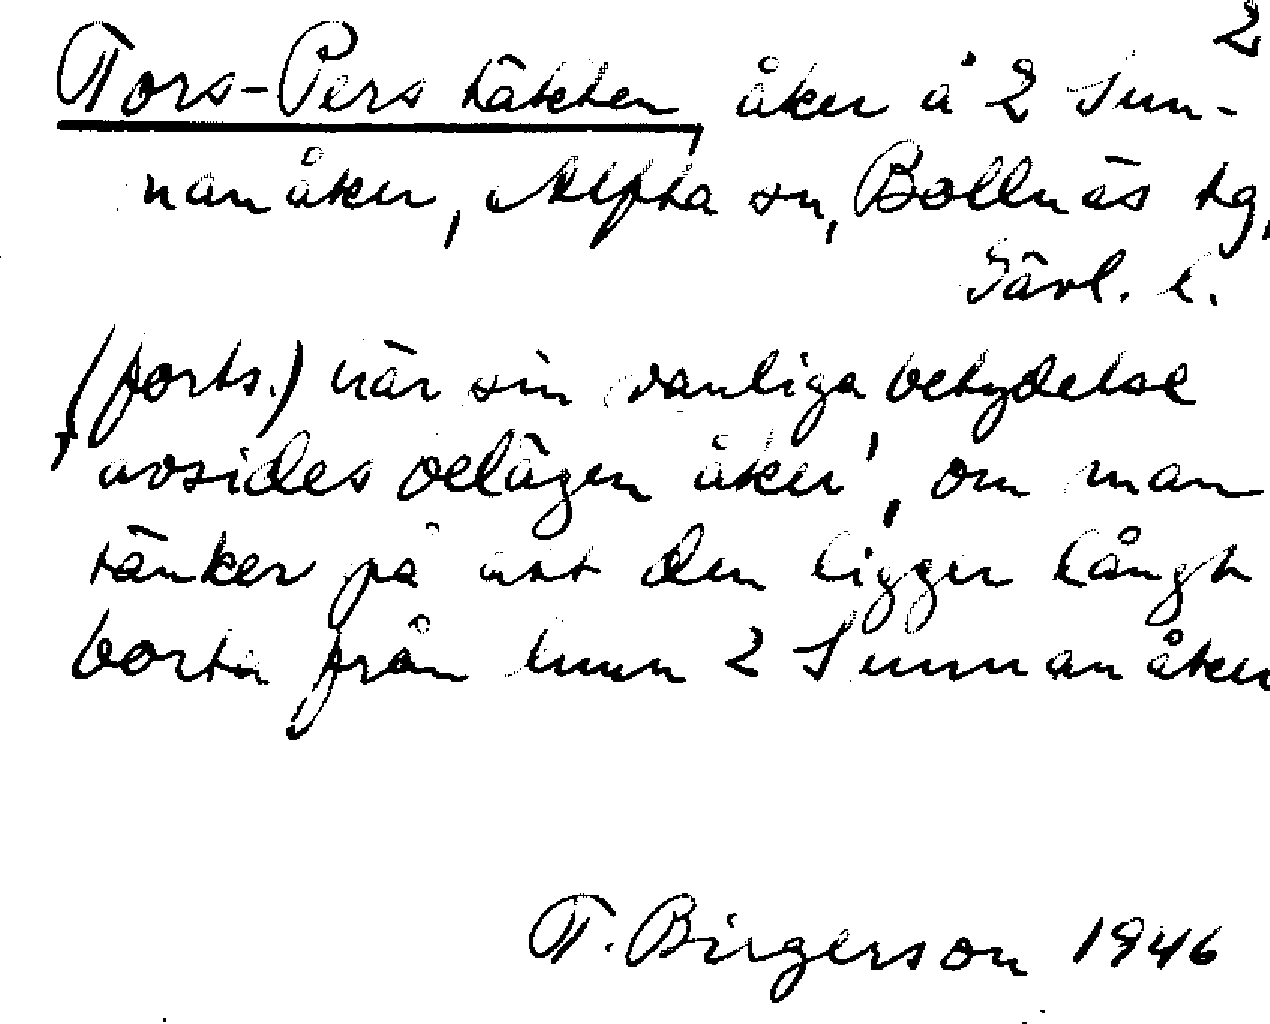 2
Tors-Pers täkten, åker å 2 Sun-
nanåker, Alfta sn, Bollnäs tg,
Gävl. l.
(forts.) när sin vanliga betydelse
'avsides belägen åker', om man
tänker på att den ligger långt
borta från hmn 2 Sunnanåker
T. Birgerson 1946